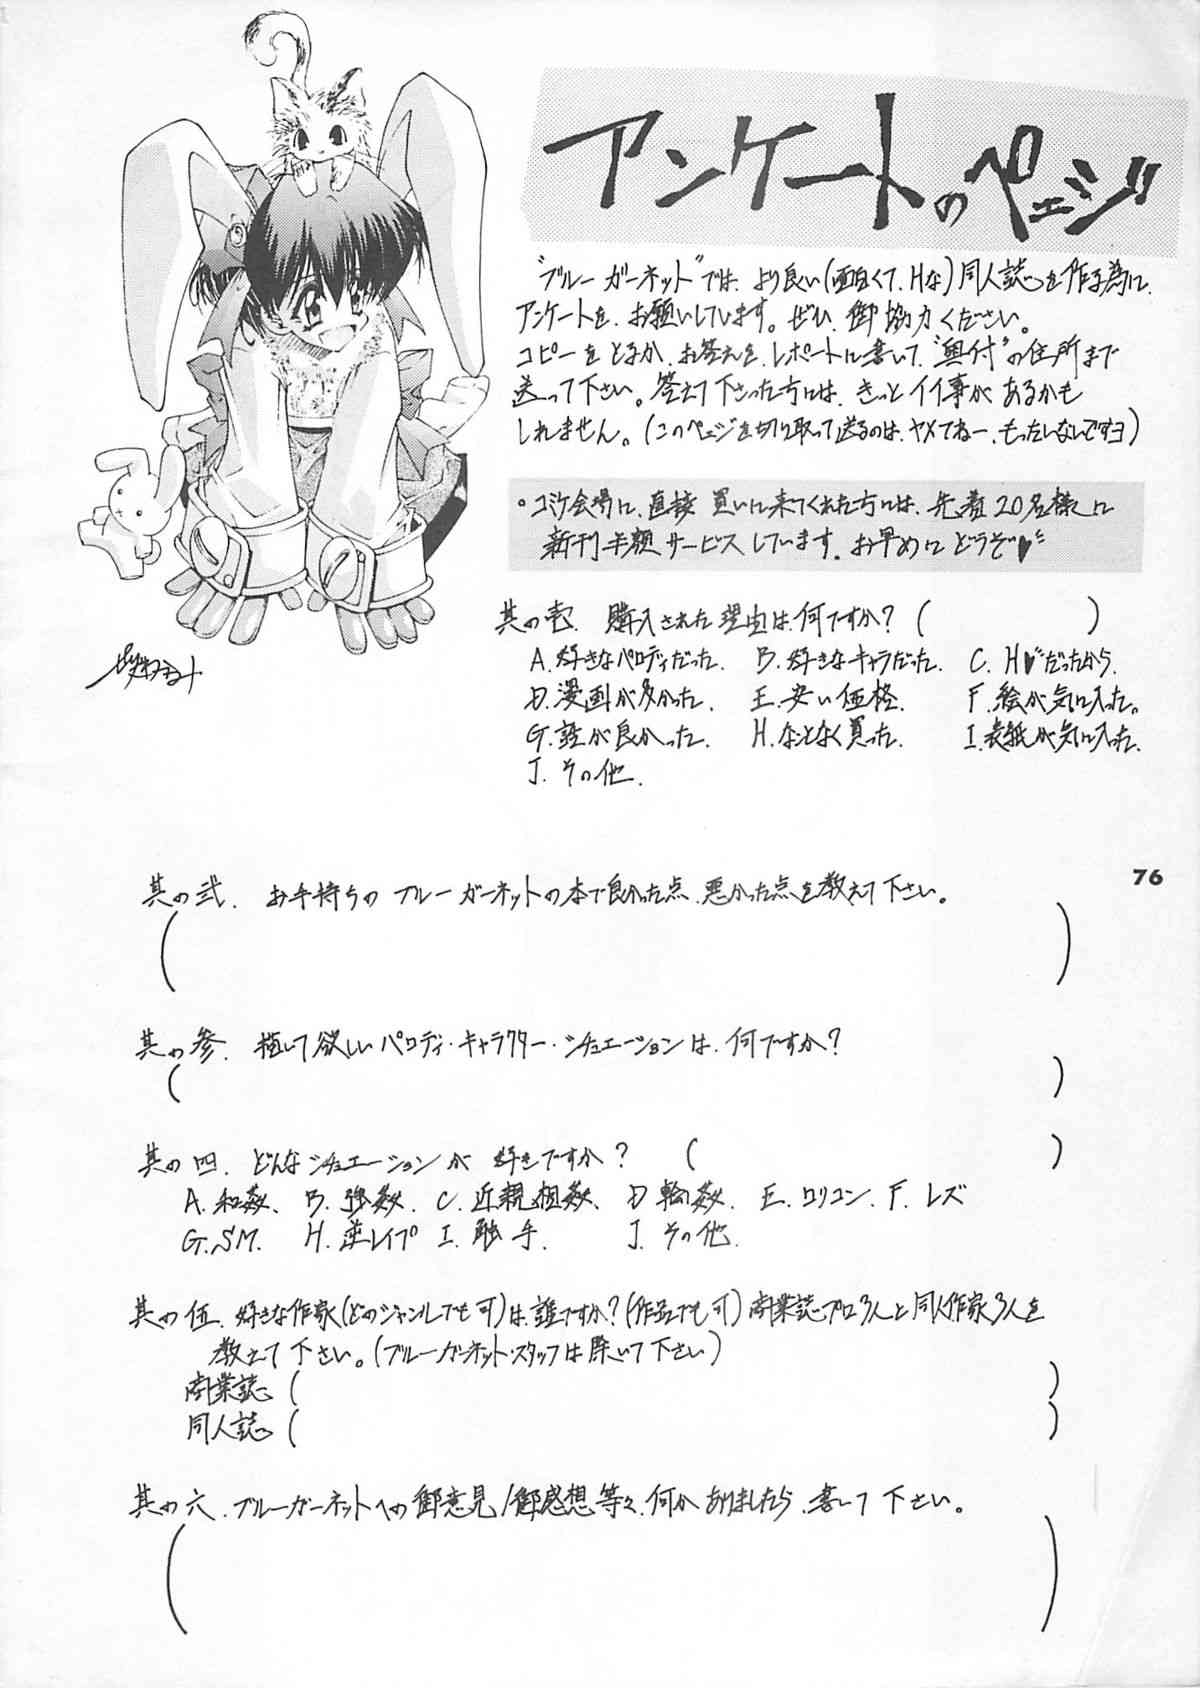 アンケートのペェジ
"ブルーガーネット"では、より良い(面白くて、Hな)同人誌を作る為に、
アンケートを、お願いしています。ぜひ、御協力ください。
コピーをとるか、お答えを、レポートに書いて、"奥付"の住所まで
送って下さい。答えて下さった方には、きっとイイ事があるかも
しれません。(このペェジを切り取って送るのは、ヤメてねー、もったいないですヨ)
・コミケ会場に、直接買いに来てくれた方には、先着20名様に
新刊半額サービスしています。お早めにどうぞ♥
其の壱. 購入された理由は、何ですか?( )
A. 好きなパロディだった. B. 好きなキャラだった. C. H♥だったから.
D. 漫画が多かった. E. 安い価格. F. 絵が気に入った。
G. 話が良かった. H. なんとなく買った. I. 表紙が気に入った.
J. その他.
76
其の弐. お手持ちのブルーガーネットの本で良かった点、悪かった点を教えて下さい。
( )
其の参. 描いて欲しいパロディ・キャラクター・シチュエーションは、何ですか?
( )
其の四. どんなシチュエーションが好きですか? ( )
A. 和姦. B. 強姦. C. 近親相姦. D. 輪姦. E. ロリコン. F. レズ
G. SM. H. 逆レイプ I. 触手. J. その他.
其の伍. 好きな作家(どのジャンルでも可)は、誰ですか?(作品でも可)商業誌プロ3人と同人作家3人を
教えて下さい。(ブルーガーネット・スタッフは除いて下さい)
商業誌 ( )
同人誌 ( )
其の六. ブルーガーネットへの御意見/御感想等々、何かありましたら、書いて下さい。
( )